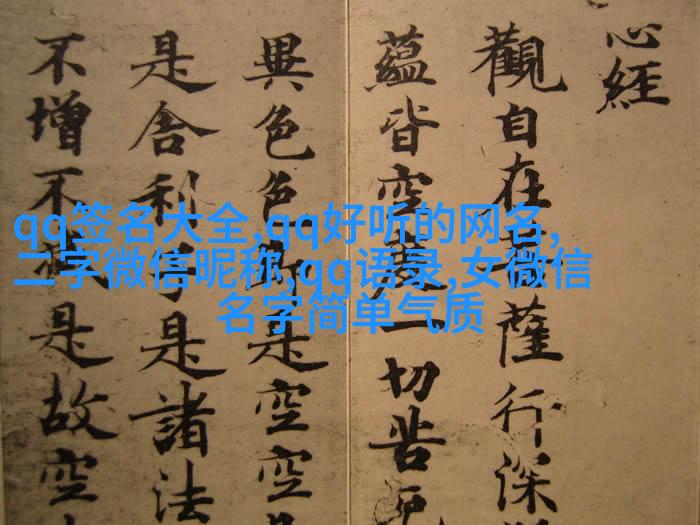 心經
觀自在菩薩行深
蘊皆空度一切苦厄
異色色即是空空
是舍利子是諸法
不增不減是故空
qq签名大全,qq好听的网名,
二字微信昵称,qq语录,女微信
名字简单气质